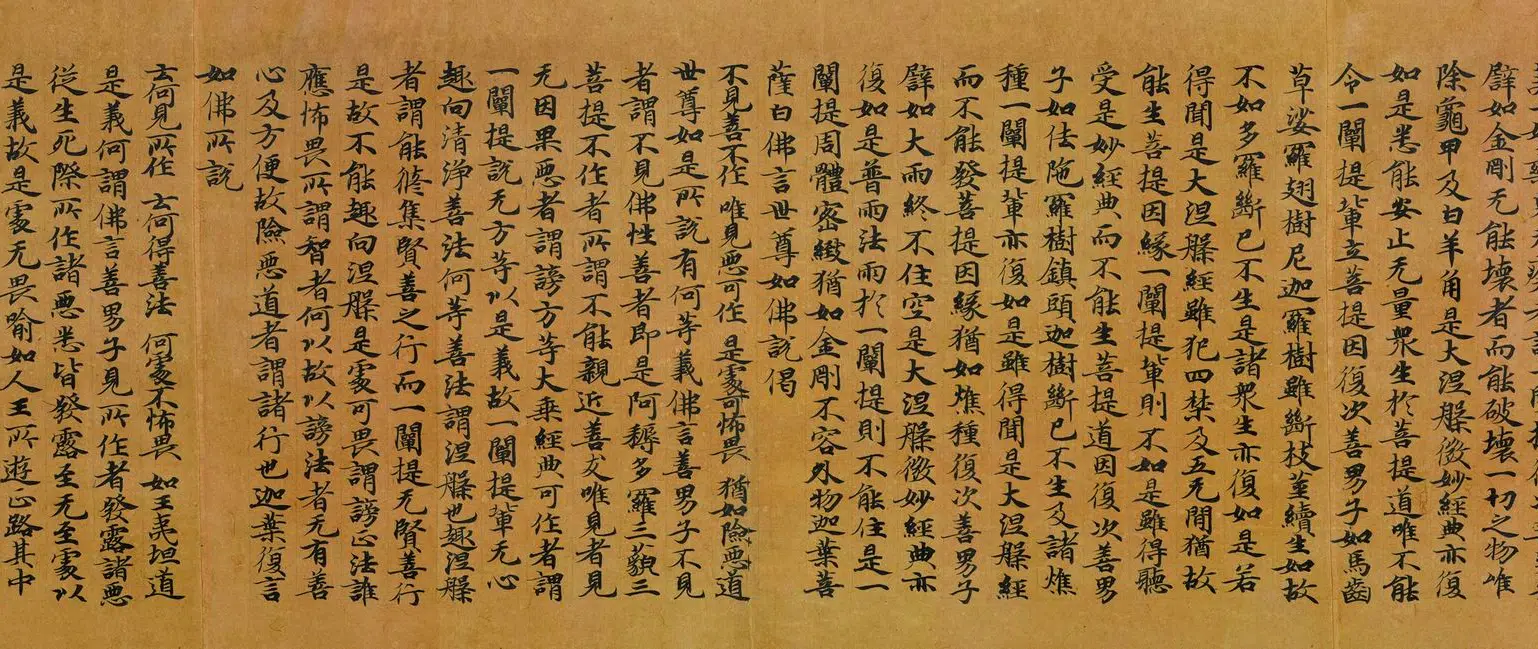 譬如金剛无能壞者而能破壞一切之物唯
除龜甲及白羊角是大涅槃微妙經典亦復
如是悉能安止无量衆生於菩提道唯不能
令一闡提輩立菩提因復次善男子如馬齒
草娑羅翅樹尼迦羅樹雖斷枝莖續生如故
不如多羅斷已不生是諸衆生亦復如是若
得聞是大涅槃經雖犯四禁及五无間猶故
能生菩提因緣一闡提輩則不如是雖得聽
受是妙經典而不能生菩提道因復次善男
子如佉陁羅樹鎮頭迦樹斷已不生及諸燋
種一闡提輩亦復如是雖得聞是大涅槃經
而不能發菩提因緣猶如燋種復次善男子
譬如大雨終不住空是大涅槃微妙經典亦
復如是普雨法雨於一闡提則不能住是一
闡提周體密緻猶如金剛不容外物迦葉菩
薩白佛言世尊如佛說偈
不見善不作 唯見惡可作 是處可怖畏 猶如險惡道
世尊如是所說有何等義佛言善男子不見
者謂不見佛性善者即是阿耨多羅三藐三
菩提不作者所謂不能親近善友唯見者見
无因果惡者謂謗方等大乘經典可作者謂
一闡提說无方等以是義故一闡提輩无心
趣向清淨善法何等善法謂涅槃也趣涅槃
者謂能修集賢善之行而一闡提无賢善行
是故不能趣向涅槃是處可畏謂謗正法誰
應怖畏所謂智者何以故以謗法者无有善
心及方便故險惡道者謂諸行也迦葉復言
如佛所說
云何見所作 云何得善法 何處不怖畏 如王夷坦道
是義何謂佛言善男子見所作者發露諸惡
從生死際所作諸惡悉皆發露至无至處以
是義故是處无畏喻如人王所遊正路其中